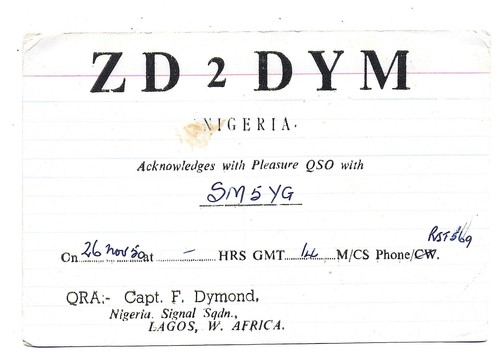 ZD 2 DYM
NIGERIA.
Acknowledges with Pleasure QSO with
SM5YG
RST 569
On 26 Nov 50 at - HRS GMT 14 M/CS Phone/CW.
QRA:- Capt. F. Dymond,
Nigeria. Signal Sqdn.,
LAGOS, W. AFRICA.